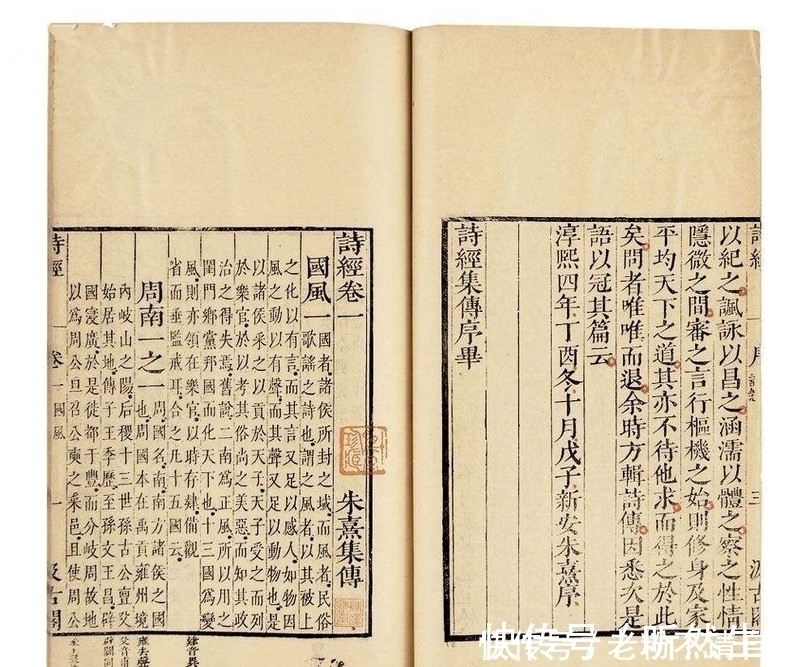 以紀之諷詠以昌之涵濡以體之察之性情
隱微之間審之言行樞機之始則修身及家
平均天下之道其亦不待他求而得之於此
矣問者唯唯而退余時方輯詩傳因悉次是
語以冠其篇云
淳熙四年丁酉冬十月戊子新安朱熹序
詩經集傳序畢
詩經卷一 朱熹集傳
國風一 國者諸侯所封之域而風者民俗
歌謠之詩也謂之風者以其被上
之化以有言而其言又足以感人如物因
風之動以有聲而其聲又足以動物也是
以諸侯采之以貢於天子天子受之而列
於樂官於以考其俗尚之美惡而知其政
治之得失焉舊說二南爲正風所以用之
閨門鄉黨邦國而化天下也十三國爲變
風則亦領在樂官以時存肄備觀
省而垂監戒耳合之凡十五國云
周南一之一 周國名南南方諸侯之國
也周國本在禹貢雍州境
內岐山之陽后稷十三世孫古公亶父
始居其地傳子王季歷至孫文王昌辟
國寖廣於是徙都于豐而分岐周故地
以爲周公旦召公奭之采邑且使周公
詩經 卷一 國風 一 汲古閣
快传号